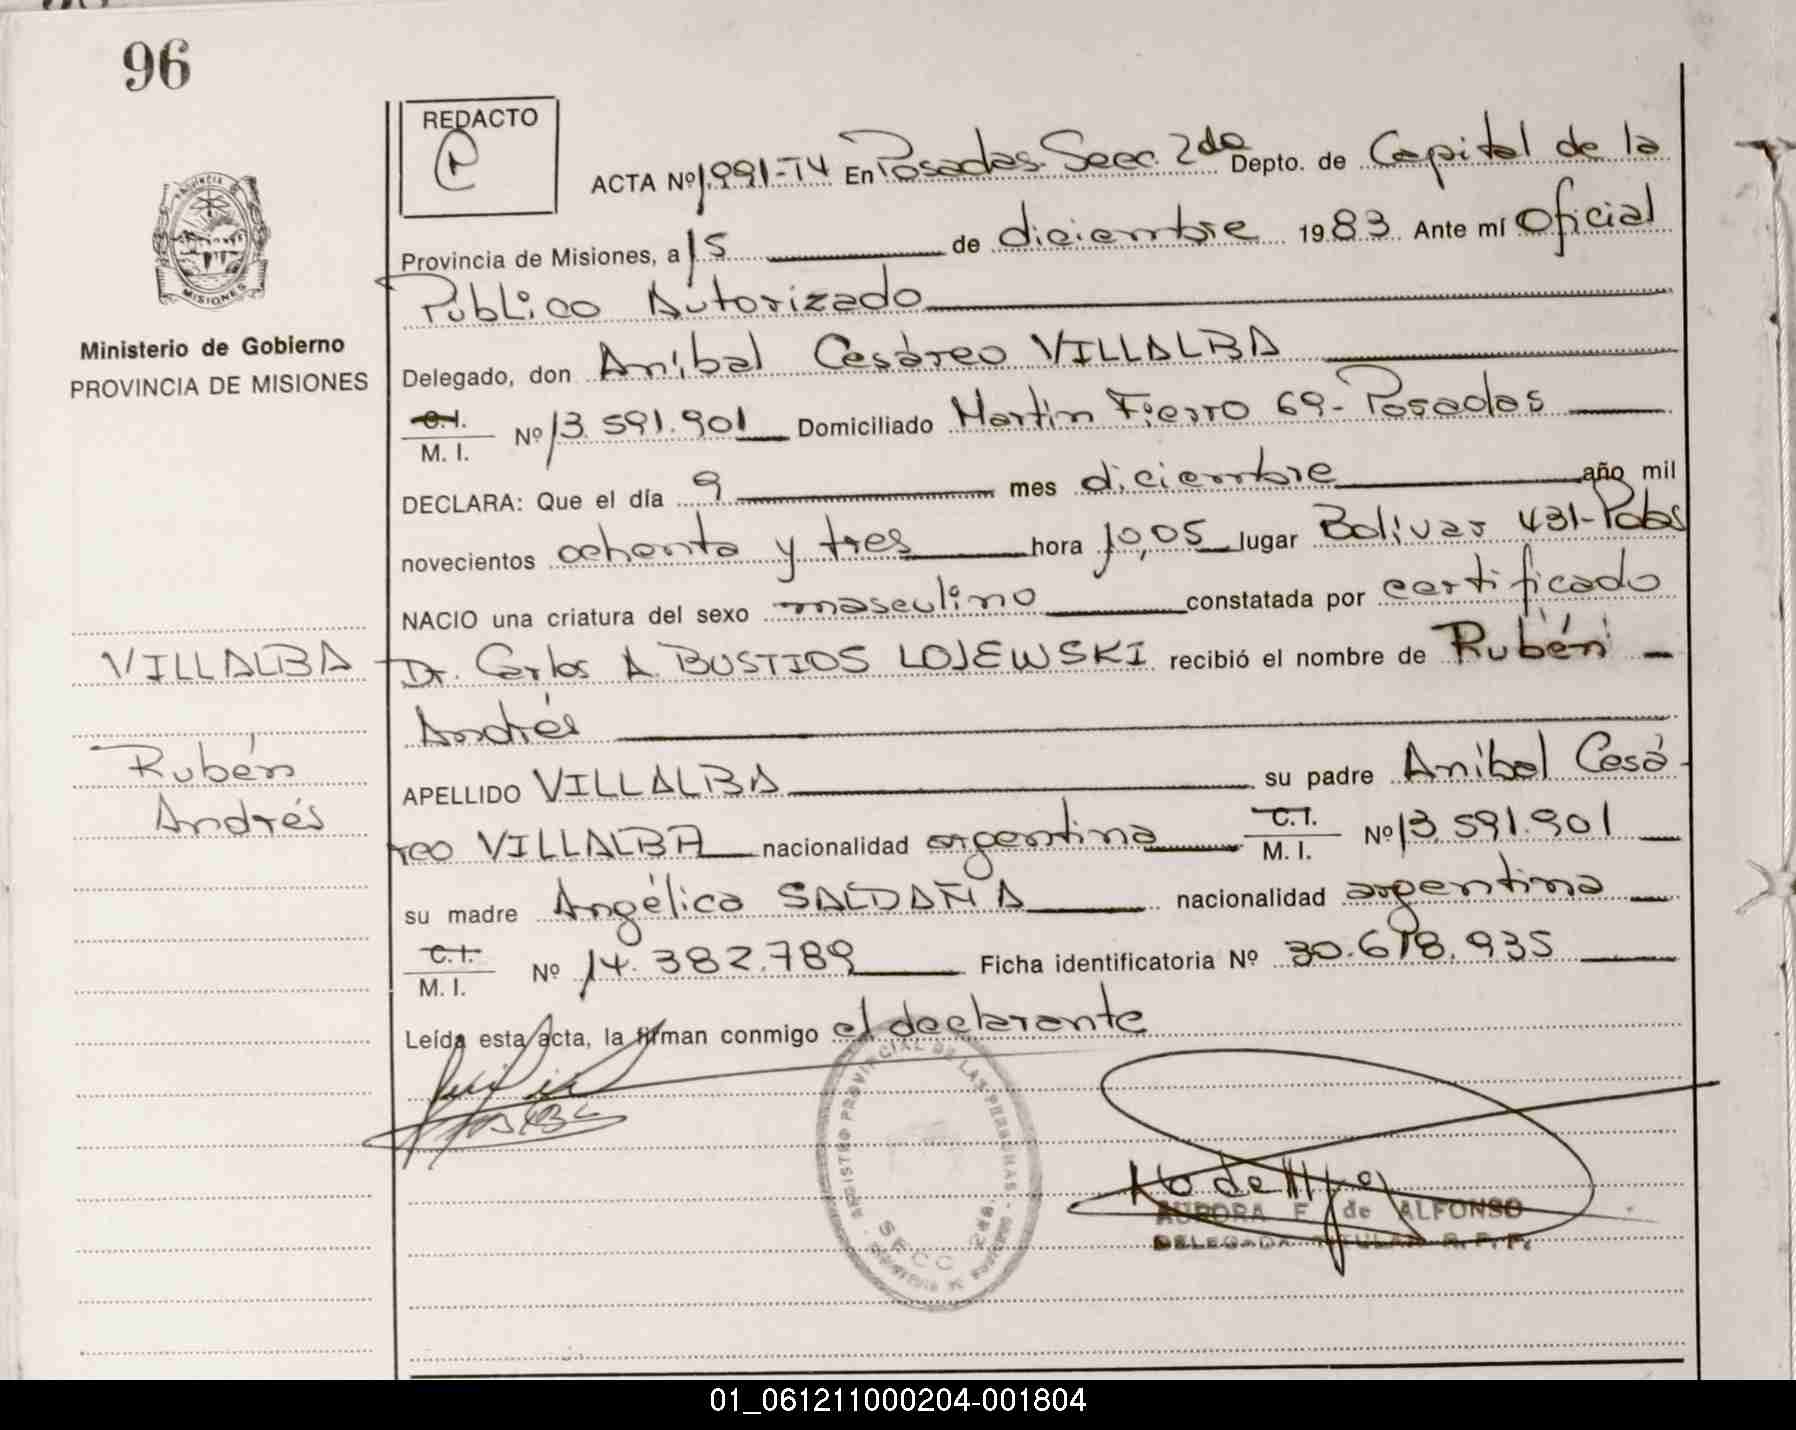 96
REDACTO
ACTA Nº 1.991-T4 En Posadas. Secc. 2da Depto. de Capital de la
Provincia de Misiones, a 15 de diciembre 1983 Ante mí Oficial
Público Autorizado
Ministerio de Gobierno
PROVINCIA DE MISIONES
Delegado, don Aníbal Cesáreo VILLALBA
C.I.
M. I. Nº 13.591.901 Domiciliado Martín Fierro 69-Posadas
DECLARA: Que el día 9 mes diciembre año mil
novecientos ochenta y tres hora 10,05 lugar Bolívar 431-Pdas
NACIO una criatura del sexo masculino constatada por certificado
Dr. Carlos A BUSTIOS LOJEWSKI recibió el nombre de Rubén
Andrés
VILLALBA
Rubén
Andrés
APELLIDO VILLALBA su padre Aníbal Cesá-
reo VILLALBA nacionalidad argentina C.I. M. I. Nº 13.591.901
su madre Angélica SALDAÑA nacionalidad argentina
C.I.
M. I. Nº 14.382.789 Ficha identificatoria Nº 30.678.935
Leída esta acta, la firman conmigo el declarante
REGISTRO PROVINCIAL DE LAS PERSONAS
SECC 2da.
AURORA F. de ALFONSO
DELEGADA TITULAR R. P. P.
01_061211000204-001804